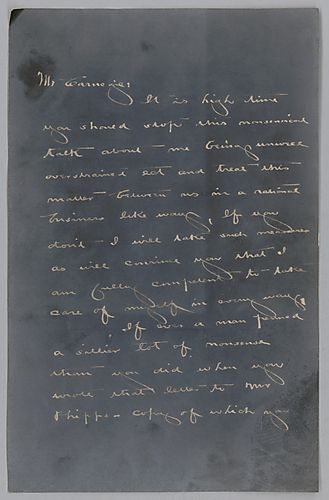 Mr Carnegie:
It is high time
you should stop this nonsensical
talk about me being unwell
overstrained ect and treat this
matter between us in a rational
business like way, If you
don't I will take such measures
as will convince you that I
am fully competent to take
care of myself in every way.
If ever a man penned
a sillier lot of nonsense
than you did when you
wrote that letter to Mr
Phipps - copy of which you